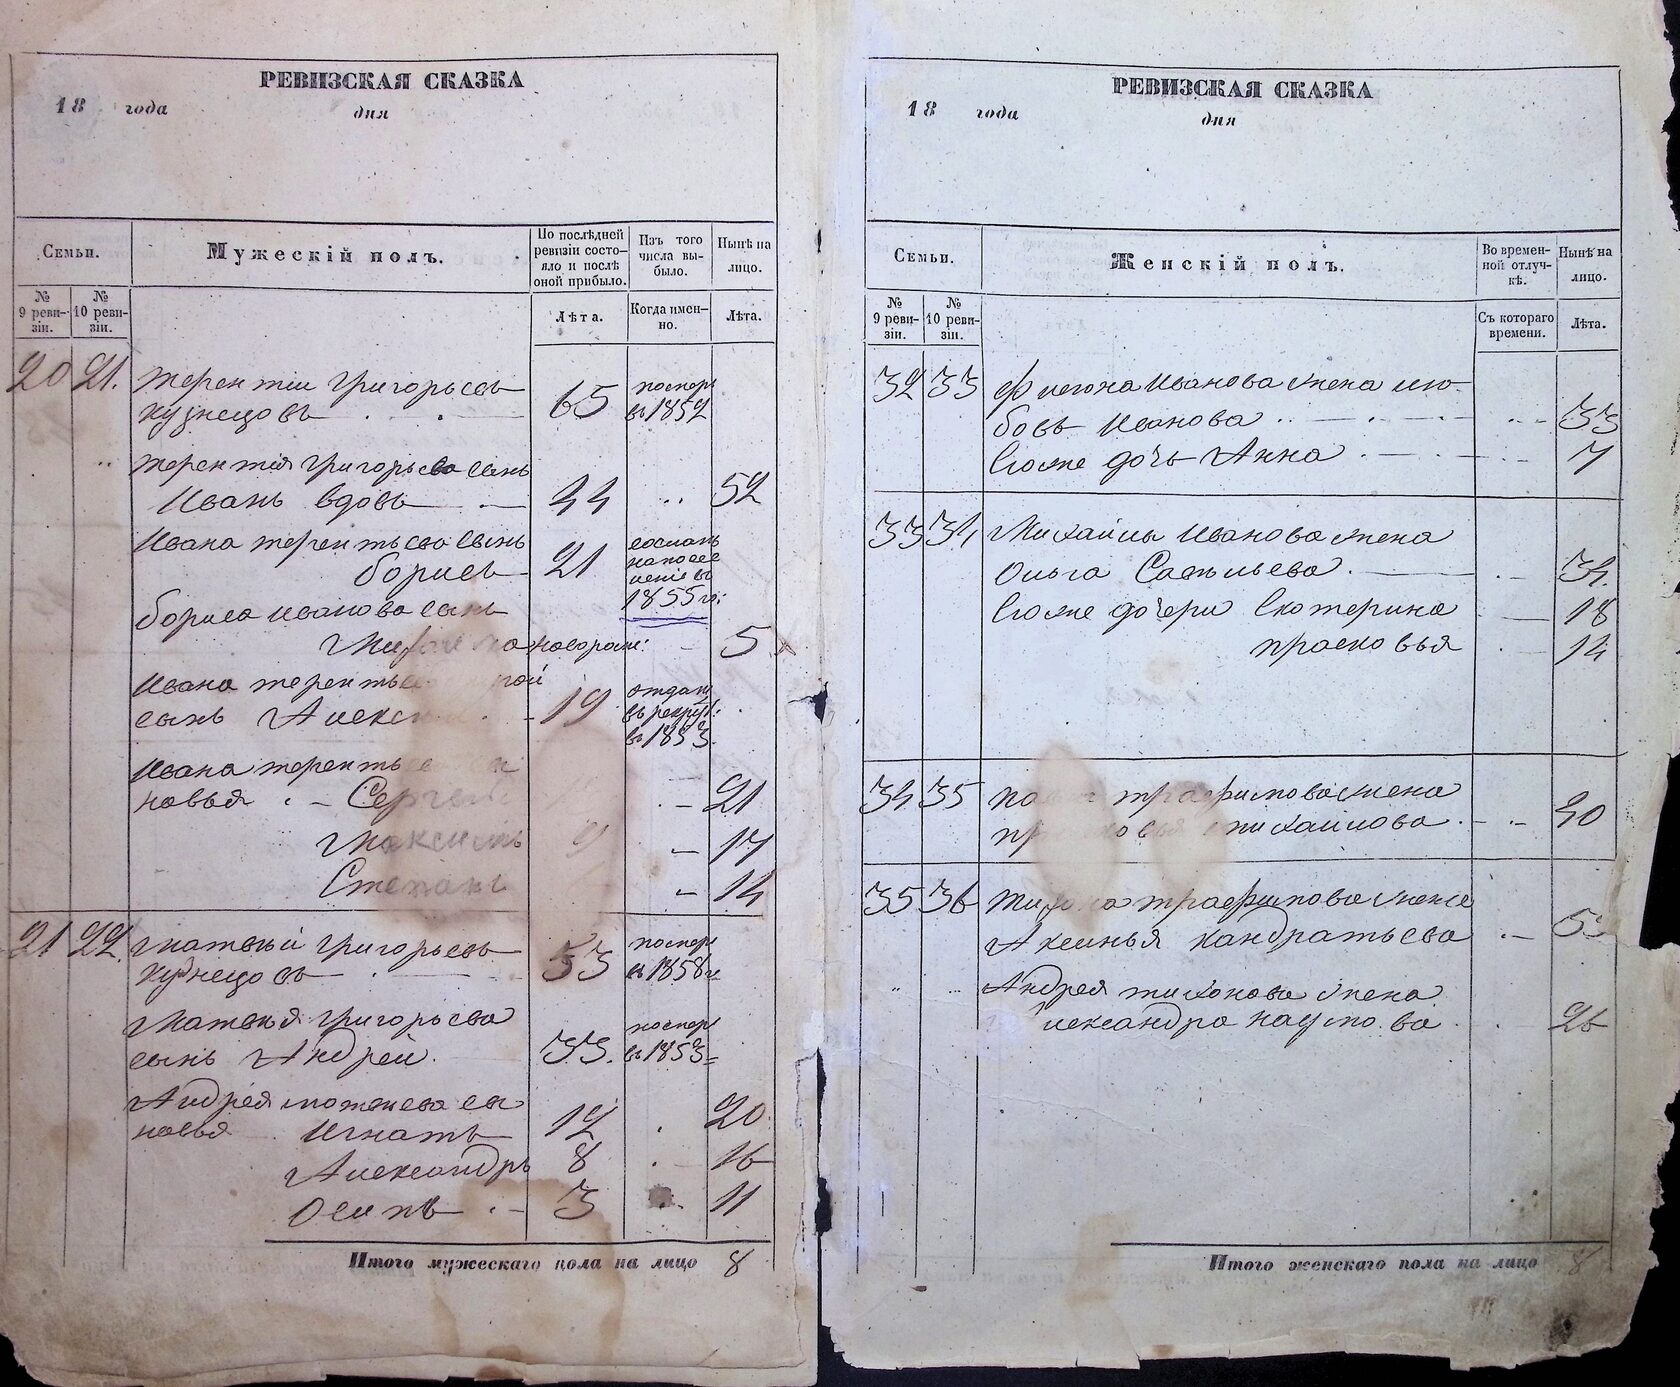 РЕВИЗСКАЯ СКАЗКА
18 года дня
Семьи.
Мужескій полъ.
По послѣдней ревизіи состояло и послѣ оной прибыло.
Изъ того числа выбыло.
Нынѣ на лицо.
№ 9 ревизіи.
№ 10 ревизіи.
Лѣта.
Когда именно.
Лѣта.
20 21. Терентій Григорьевъ
Кузнецовъ 65 померъ въ 1852
Терентія Григорьева сынъ
Иванъ вдовъ 44 52
Ивана Терентьева сынъ
Борисъ 21 сосланъ на поселеніе въ 1855 г:
Бориса Иванова сынъ
новорож: 5
Ивана
сынъ 19 отданъ въ рекруты въ 1853.
Ивана
новья Сергей 21
Максимъ 9 17
Степанъ 14
21 22. Матвѣй Григорьевъ
Кузнецовъ 53 померъ въ 1858 г
Матвѣя Григорьева
сынъ Андрей. 33. померъ въ 1853
Андрея Матвѣева сы
новья Игнатъ 12 20
Александръ 8 16
Осипъ 3 11
Итого мужескаго пола на лицо 8
РЕВИЗСКАЯ СКАЗКА
18 года дня
Семьи.
Женскій полъ.
Во временной отлучкѣ.
Нынѣ на лицо.
№ 9 ревизіи.
№ 10 ревизіи.
Съ котораго времени.
Лѣта.
32 33 Иванова жена Лю
бовь Иванова 33
Егоже дочь Анна 7
33 34 Михайлы Иванова жена
Ольга Савельева. 34
Егоже дочери Екатерина 18
Прасковья 14
34 35 Трафимова жена
Михаилова. 40
35 36 Трафимова жена
Аксинья Кандратьева
Андрея Тихонова жена
Александра Наумова 26
Итого женскаго пола на лицо 8